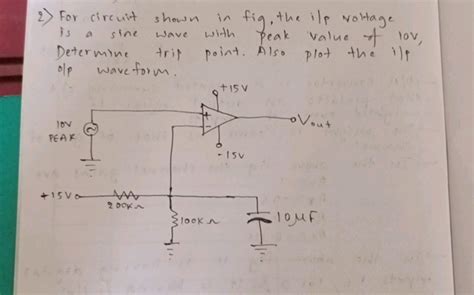 2) For circuit shown in fig, the i/p voltage
is a sine wave with peak value of 10V,
Determine trip point. Also plot the i/p
o/p waveform.
+15V
+
-
Vout
10V
PEAK
-15V
+15V
200KΩ
100KΩ
10μF